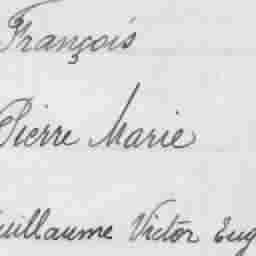 François
Pierre Marie
Guillaume Victor Eug